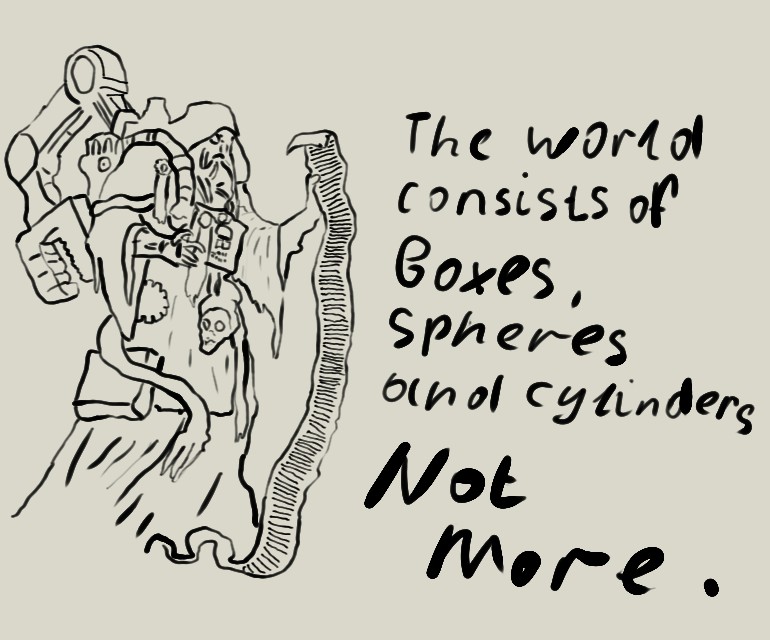 The world
consists of
Boxes,
spheres
and cylinders
Not
more.